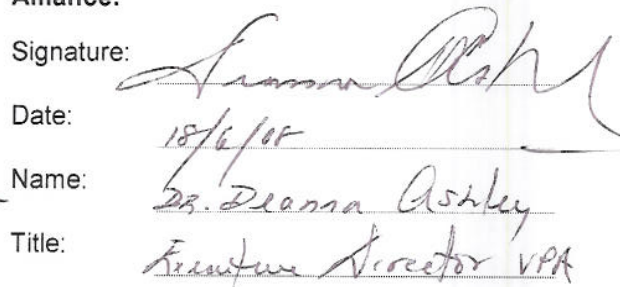 Alliance:
Signature: Deanna Ashley
Date: 18/6/08
Name: DR. Deanna Ashley
Title: Executive Director VPA